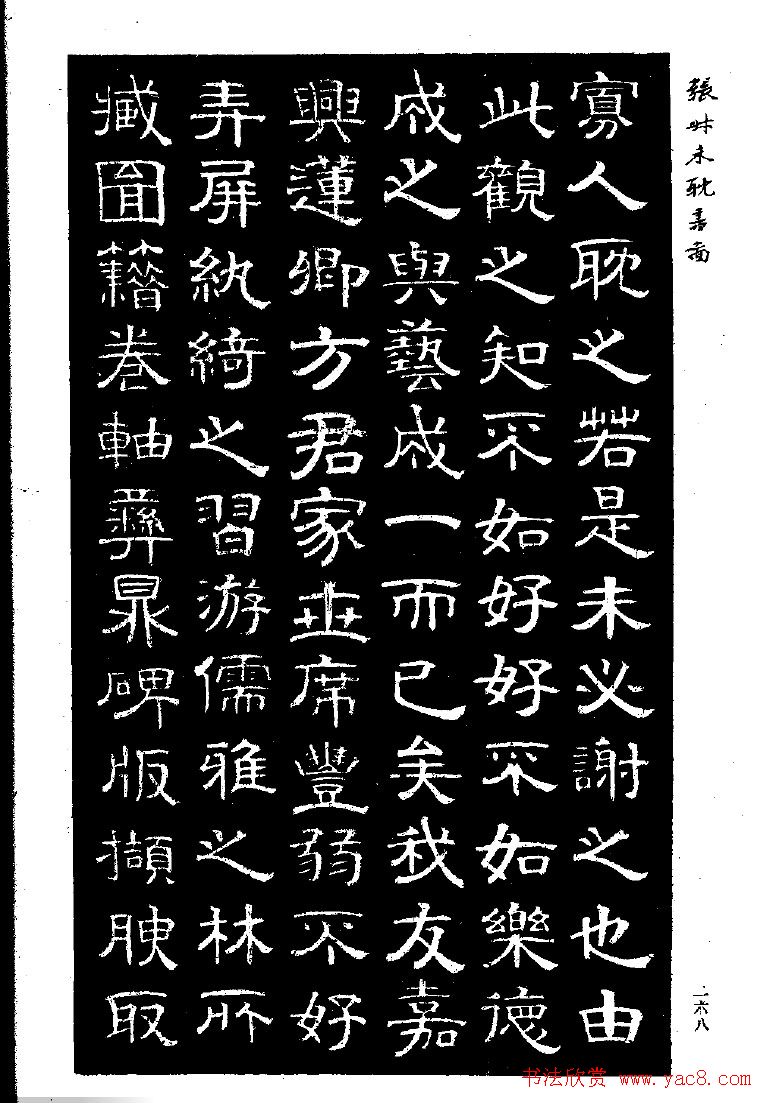 張叔未耽書啚
寡人耽之若是未必謝之也由
此觀之知不如好好不如樂德
成之與藝成一而已矣我友嘉
興蓮卿方君家世席豐弱不好
弄屏紈綺之習游儒雅之林所
藏圖籍卷軸彝鼎碑版擷腴取
一六八
书法欣赏 www.yac8.com